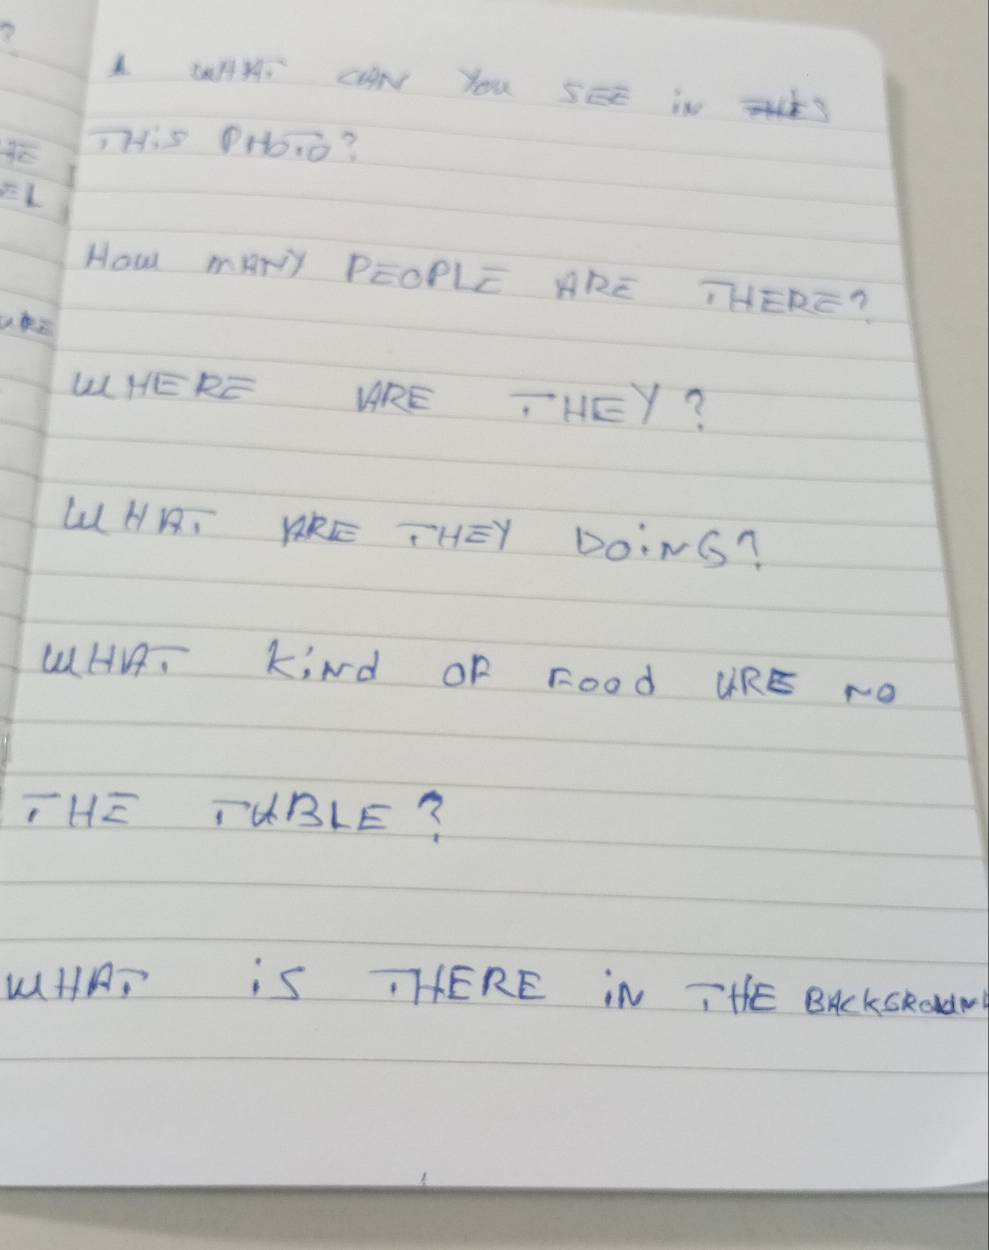 ?
1 WHAT CAN YOU SEE IN THIS
THIS PHOTO?
HOW MANY PEOPLE ARE THERE?
WHERE ARE THEY?
WHAT ARE THEY DOiNG?
WHAT KiNd OF FOOd ARE NO
THE TABLE?
WHAT iS THERE iN THE BACKGROUND